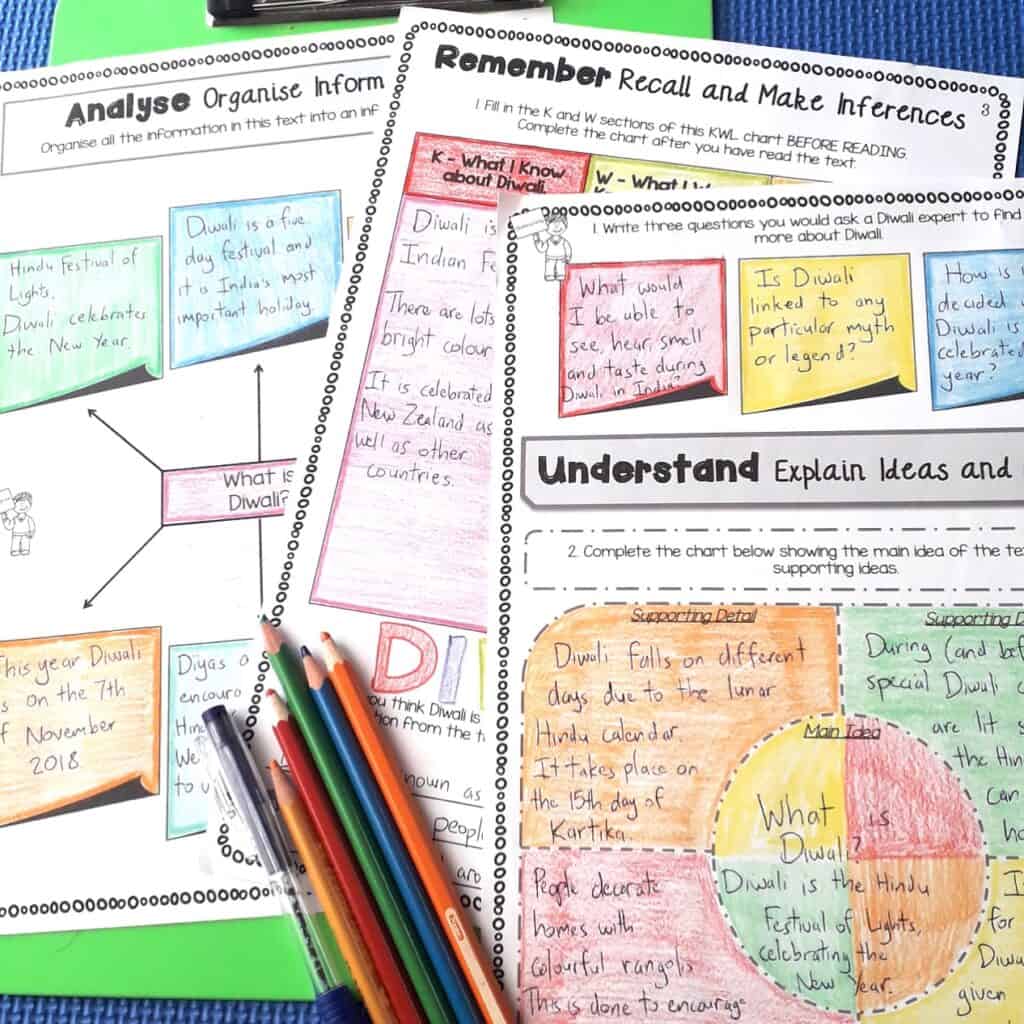 Analyse Organise Inform
Organise all the information in this text into an inf
Hindu Festival of
Lights.
Diwali celebrates
the New Year.
Diwali is a five
day festival and
it is India's most
important holiday.
What is
Diwali?
This year Diwali
s on the 7th
f November
2018
Diyas a
encoura
Hin
We
to u
Remember Recall and Make Inferences
3
1 Fill in the K and W sections of this KWL chart BEFORE READING.
Complete the chart after you have read the text.
K - What I Know
about Diwali
W - What I W
Diwali is
Indian Fe
There are lots
bright colour
It is celebrated
New Zealand as
well as other
countries.
DI
ou think Diwali is
tion from the t
nown as
people
are
1. Write three questions you would ask a Diwali expert to find
more about Diwali.
What would
I be able to
see, hear, smell
and taste during
Diwali in India?
Is Diwali
linked to any
particular myth
or legend?
How is
decided
Diwali is
celebrated
year?
Understand Explain Ideas and
2. Complete the chart below showing the main idea of the te
supporting ideas.
Supporting Detail
Diwali falls on different
days due to the lunar
Hindu calendar.
It takes place on
the 15th day of
Kartika.
Supporting D
During (and bef
special Diwali c
are lit s
the Hin
Can
ha
Main Idea
What is
Diwali?
Diwali is the Hindu
Festival of Lights,
celebrating the
New Year.
People decorate
homes with
colourful rangolis
This is done to encourage
I
for
Diwa
given